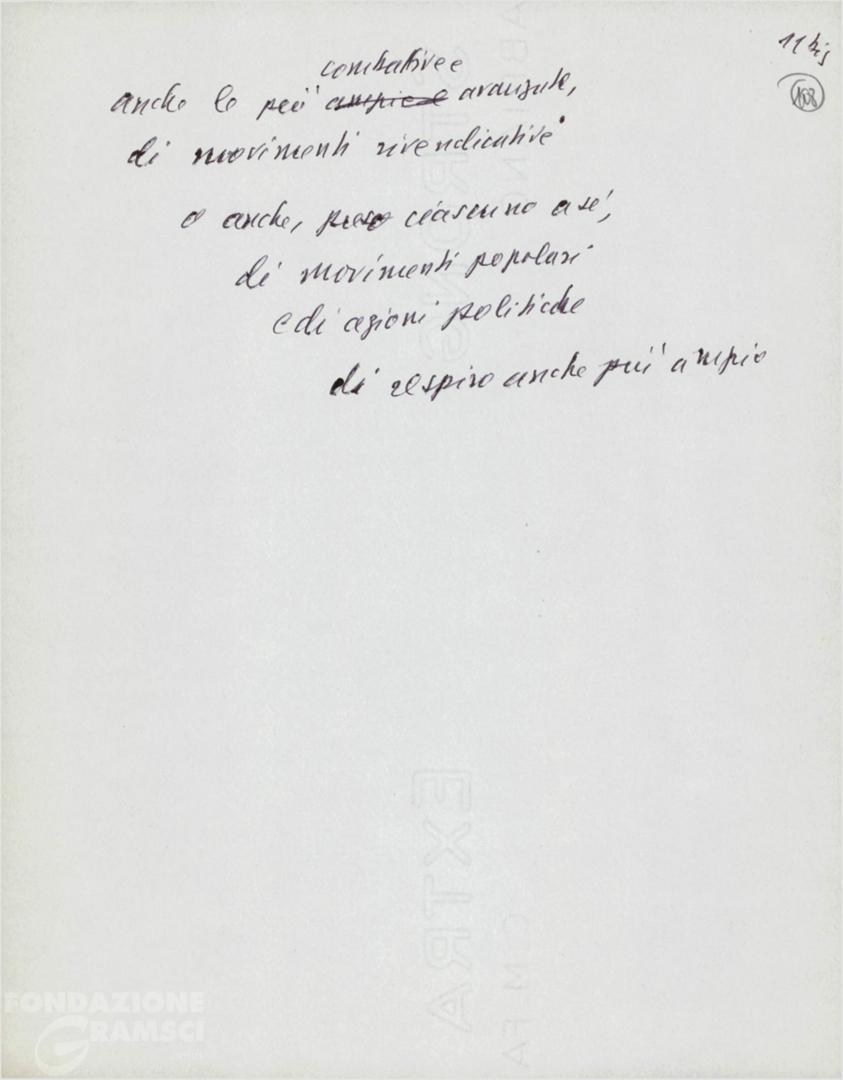 11 bis
108
combative e
anche le più ampie e avanzate,
di movimenti rivendicativi
o anche, preso ciascuno a sé,
di movimenti popolari
e di azioni politiche
di respiro anche più ampio
EXTRA
FONDAZIONE
GRAMSCI